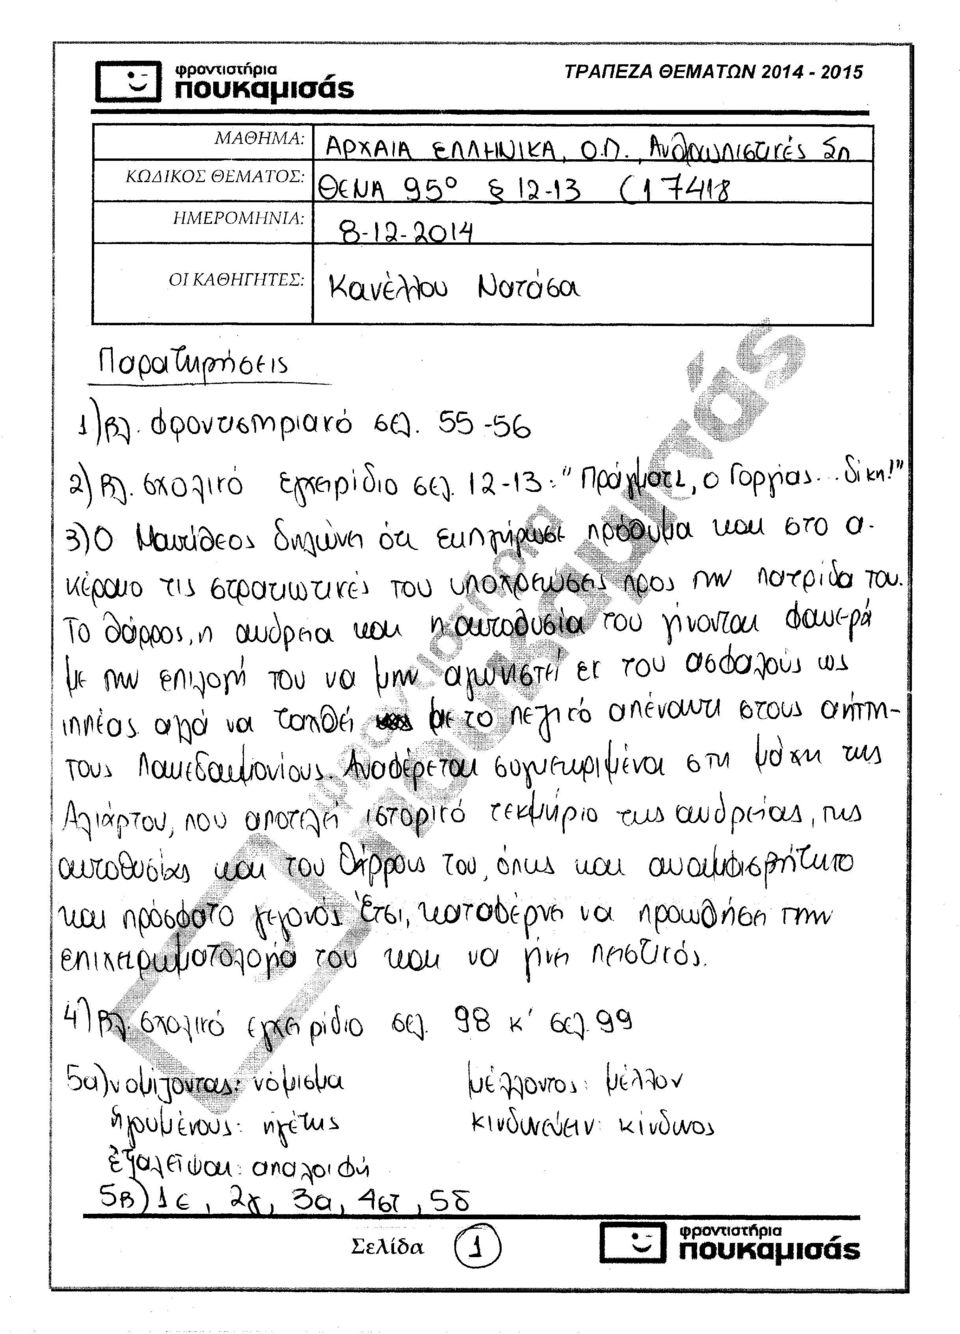 φροντιστήρια
πουκαμισάς
ΤΡΑΠΕΖΑ ΘΕΜΑΤΩΝ 2014 - 2015
ΜΑΘΗΜΑ: ΑΡΧΑΙΑ ΕΛΛΗΝΙΚΑ, Ο.Π. Ανθρωπιστικές Σπ
ΚΩΔΙΚΟΣ ΘΕΜΑΤΟΣ: ΘΕΜΑ 95° § 12-13 (17418
ΗΜΕΡΟΜΗΝΙΑ: 8-12-2014
ΟΙ ΚΑΘΗΓΗΤΕΣ: Κανέλλου Νατάσα
Παρατηρήσεις
1) βλ. φροντιστηριακό σελ. 55-56
2) βλ. σχολικό εγχειρίδιο σελ. 12-13: "Πράγματι, ο Γοργίας... δίκη!"
3) Ο Μαντίθεος δηλώνει ότι εκπλήρωσε πρόθυμα και στο α-
κέραιο τις στρατιωτικές του υποχρεώσεις προς την πατρίδα του.
Το θάρρος, η ανδρεία και η αυτοθυσία του γίνονται φανερά
με την επιλογή του να μην αγωνιστεί εκ του ασφαλούς ως
ιππέας αλλά να ταχθεί με το πεζικό απέναντι στους αήττη-
τους Λακεδαιμονίους. Αναφέρεται συγκεκριμένα στη μάχη της
Αλιάρτου, που αποτελεί ιστορικό τεκμήριο της ανδρείας, της
αυτοθυσίας και του θάρρους του, όπως και αναμφισβήτητο
και πρόσφατο γεγονός. Έτσι, καταφέρνει να προωθήσει την
επιχειρηματολογία του και να γίνει πειστικός.
4) βλ. σχολικό εγχειρίδιο σελ. 98 κ' σελ. 99
5α) νομίζοντας: νόμισμα μέλλοντος: μέλλον
ηγουμένους: ηγέτης κινδυνεύειν: κίνδυνος
ἐξαλεῖψαι: απαλοιφή
5β) 1ε, 2γ, 3α, 4στ, 5δ
Σελίδα 1
φροντιστήρια
πουκαμισάς
φροντιστήρια
πουκαμισάς